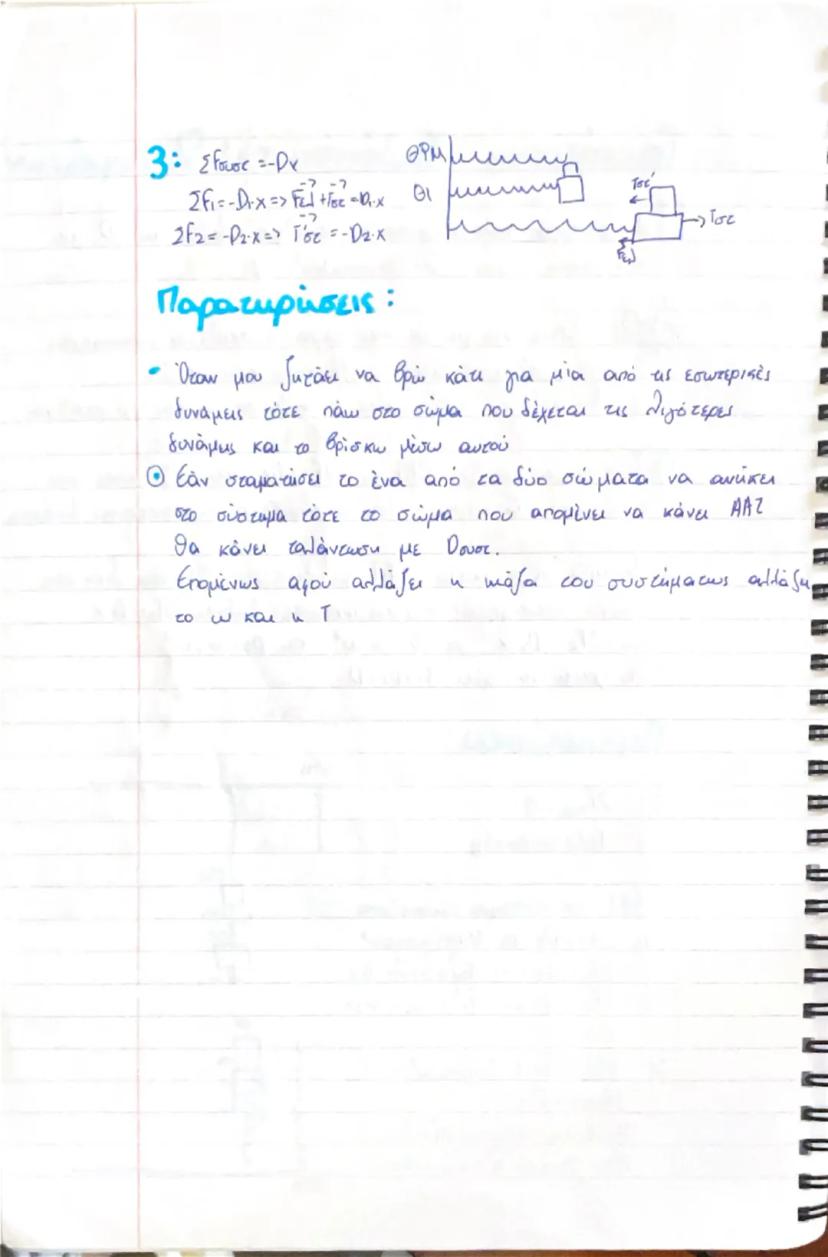 3: ΣFσυστ = -Dx
ΣF1 = -D1·x => Fελ + Tστ = -D1·x
ΣF2 = -D2·x => T'στ = -D2·x
ΘΦΜ
ΘΙ
Tστ'
Tστ
Fελ
Παρατηρήσεις:
• Όταν μου ζητάει να βρω κάτι για μία από τις εσωτερικές
δυνάμεις τότε πάω στο σώμα που δέχεται τις λιγότερες
δυνάμεις και το βρίσκω μέσω αυτού
Εάν σταματήσει το ένα από τα δύο σώματα να ανήκει
στο σύστημα τότε το σώμα που απομένει να κάνει ΑΑΤ
θα κάνει ταλάντωση με Dσυστ.
Επομένως αφού αλλάζει η μάζα του συστήματως αλλάζει
το ω και η Τ